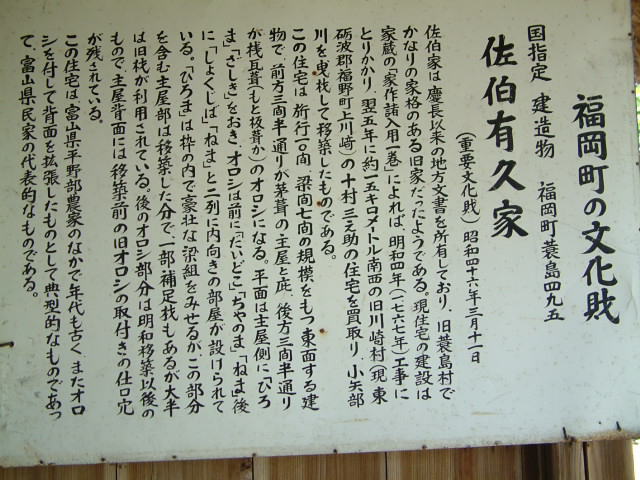 福岡町の文化財
国指定 建造物 福岡町蓑島四九五
佐伯有久家
(重要文化財) 昭和四十六年三月十一日
佐伯家は慶長以来の地方文書を所有しており、旧蓑島村で
かなりの家格のある旧家だったようである。現住宅の建設は
家蔵の「家作諸入用一巻」によれば、明和四年(一七六七年)工事に
とりかかり、翌五年に約一五キロメートル南西の旧川崎村(現東
砺波郡福野町上川崎)の十村三之助の住宅を買取り、小矢部
川を曳栈して移築したものである。
この住宅は、桁行一〇間、梁間七間の規模をもつ東面する建
物で、前方三間半通りが茅葺の主屋と庇、後方三間半通り
が桟瓦葺(もと板葺か)のオロシになる。平面は主屋側に「ひろ
ま」「ざしき」をおき、オロシは前に「だいどこ」「ちやのま」「ねま」後
に「しょくじば」「ねま」と二列に内向きの部屋が設けられて
いる。「ひろま」は枠の内で豪壮な梁組をみせるが、この部分
を含む主屋部は移築した分で、一部補足栈もあるが大半
は旧栈が利用されている。後のオロシ部分は明和移築以後の
もので、主屋背面には移築前の旧オロシの取付きの仕口穴
が残されている。
この住宅は、富山県平野部農家のなかで年代も古く、またオロ
シを付して背面を拡張したものとして典型的なものであっ
て、富山県民家の代表的なものである。